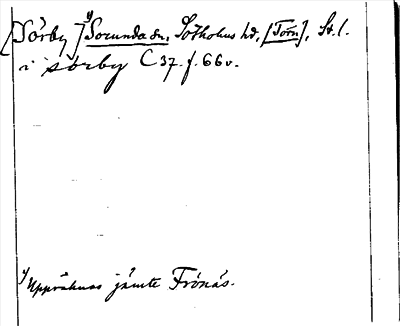 [Sörby] y) Sorunda sn, Sotholms hd, [Törn], St. l.
i sørby C 37. f. 66 v.
y) Uppräknas jämte Frönäs.